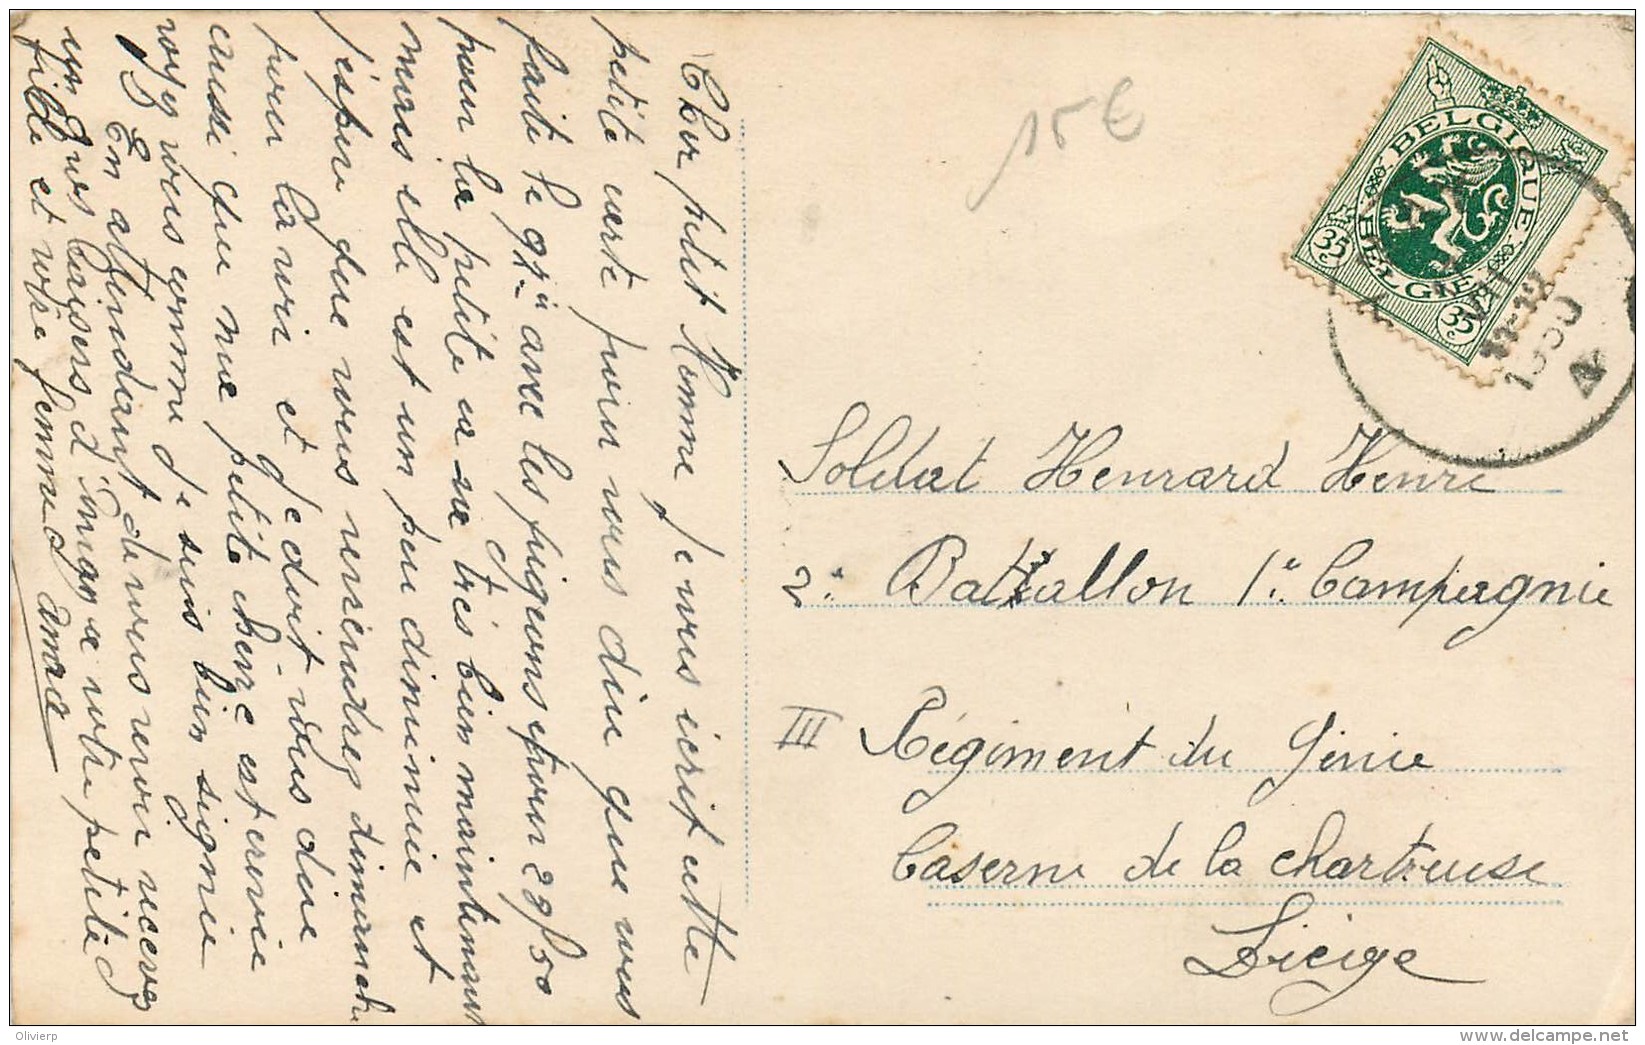 Cher petit Homme je vous ecrit cette
petite carte pour vous dire que vous
fait le 9t. avec les pigeons pour 29f 50
pour la petite sa va très bien maintenant
mais elle est un peu diminué et
j'espere que vous reviendrez dimanche
pour la voir et je doit vous dire
aussi que ma petite chère est
voyez vous comme je suis bien signé
En attendant de vous revoir recevez
un gros baisers d'Inca de votre petite
fille et votre femme
15 €
BELGIQUE
BELGIE
35
35
11-12
1930
Soldat Henrard Henri
2e Battallon 1e Compagnie
III Régiment du Génie
Caserne de la chartreuse
Lieige
Olivierp
www.delcampe.net